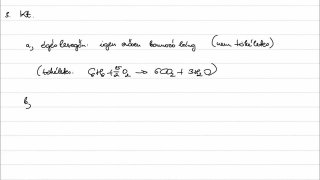 3. Ké.
a, égés levegőn: igen erősen kormozó láng (nem tökéletes)
(tökéletes: C₆H₆ + 15/2 O₂ → 6CO₂ + 3H₂O)
b,